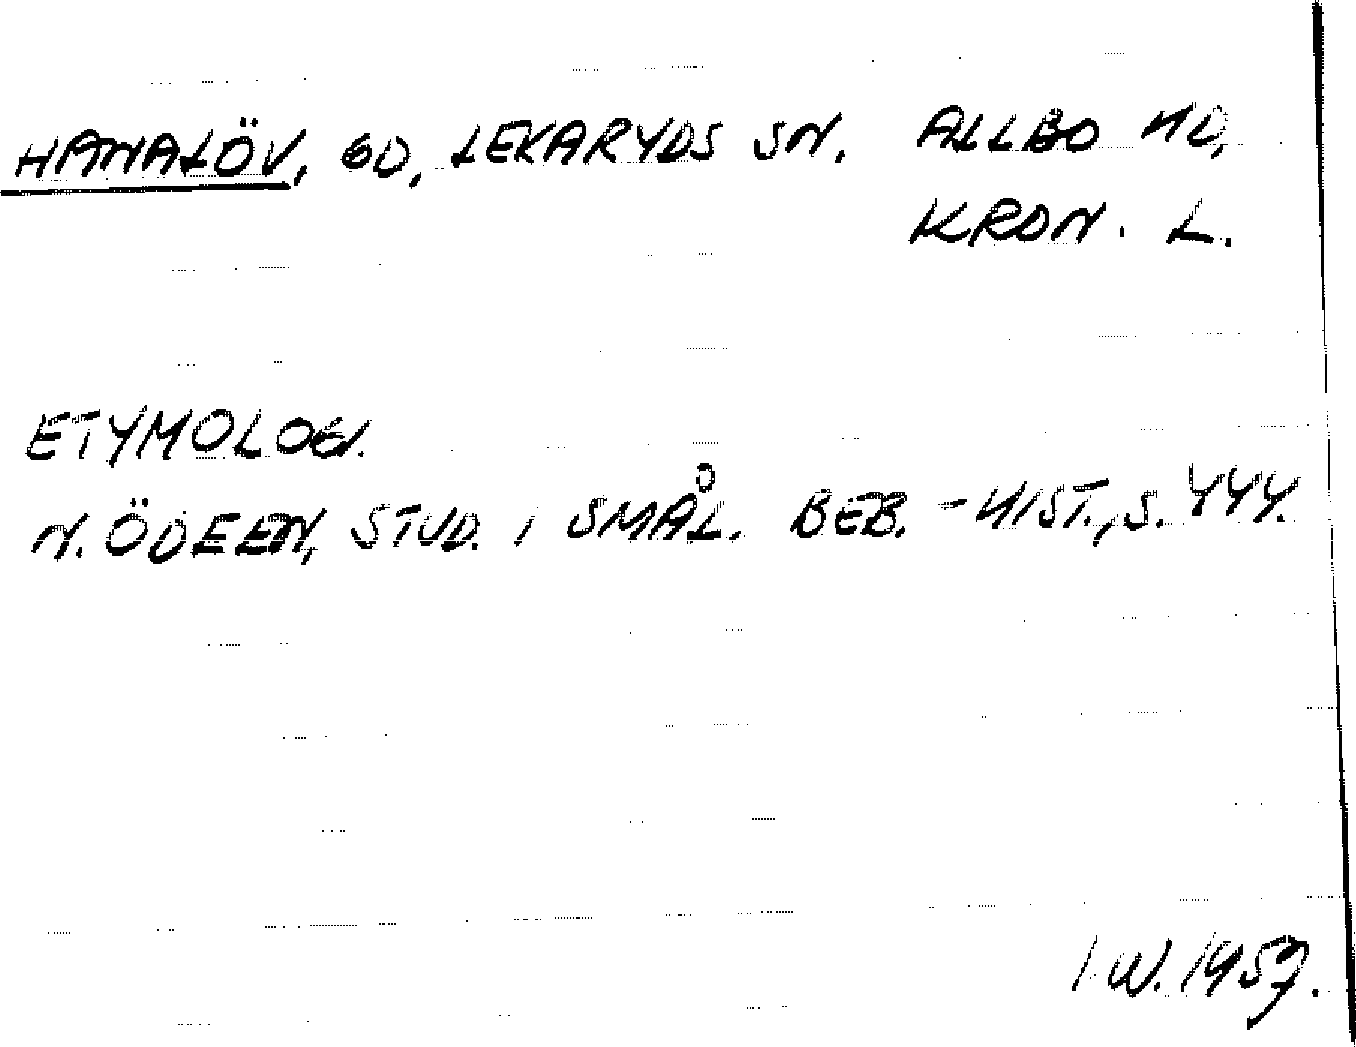 HANALÖV, GD, LEKARYDS SN. ALLBO HD,
KRON. L.
ETYMOLOGI.
N. ÖDEEN, STUD. I SMÅL. BEB. - HIST., S. 444.
I W. 1957.